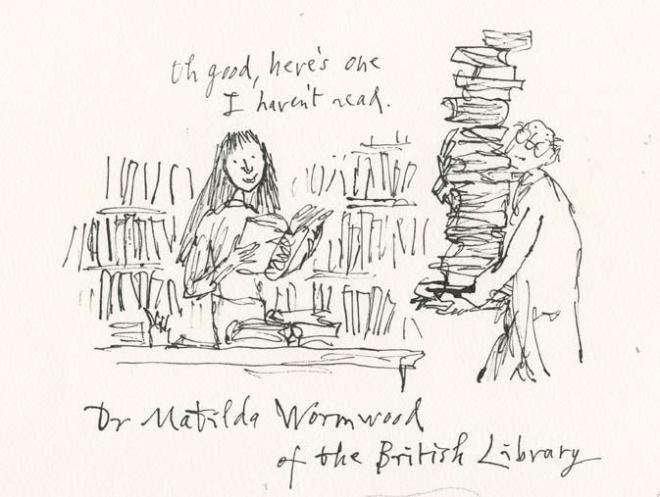 Oh good, here's one
I haven't read.
Dr Matilda Wormwood
of the British Library